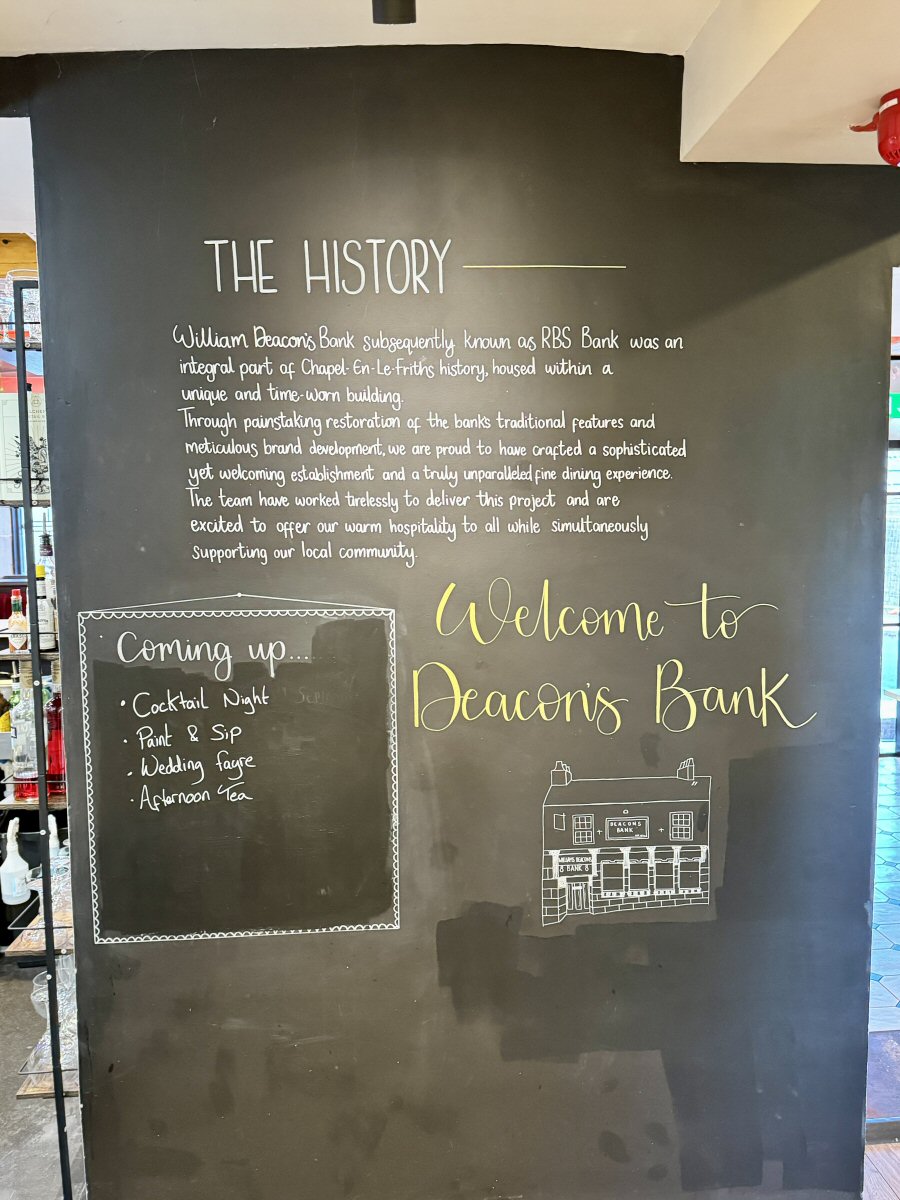 THE HISTORY
William Deacon's Bank subsequently known as RBS Bank was an
integral part of Chapel-En-Le-Friths history, housed within a
unique and time-worn building.
Through painstaking restoration of the bank's traditional features and
meticulous brand development, we are proud to have crafted a sophisticated
yet welcoming establishment and a truly unparalleled fine dining experience.
The team have worked tirelessly to deliver this project and are
excited to offer our warm hospitality to all while simultaneously
supporting our local community.
Welcome to
Deacon's Bank
Coming up...
• Cocktail Night
• Paint & Sip
• Wedding fayre
• Afternoon Tea
DEACONS
BANK
WILLIAMS DEACONS
BANK